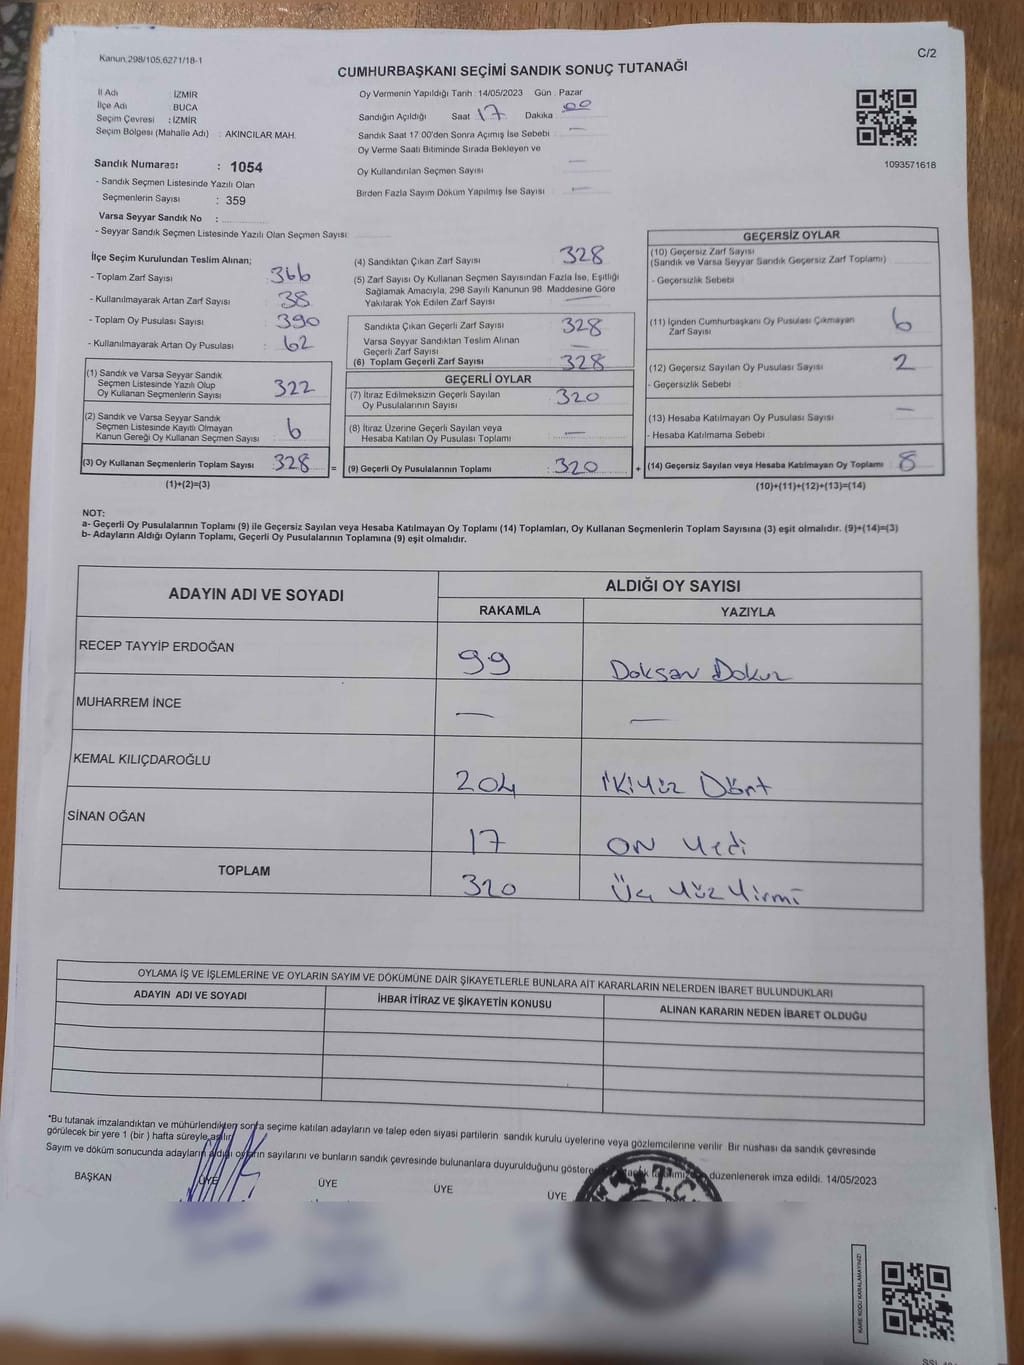 Kanun,298/105,6271/18-1
C/2
CUMHURBAŞKANI SEÇİMİ SANDIK SONUÇ TUTANAĞI
İl Adı : İZMİR
İlçe Adı : BUCA
Seçim Çevresi : İZMİR
Seçim Bölgesi (Mahalle Adı) : AKINCILAR MAH.
Sandık Numarası : 1054
- Sandık Seçmen Listesinde Yazılı Olan
Seçmenlerin Sayısı : 359
Varsa Seyyar Sandık No :
- Seyyar Sandık Seçmen Listesinde Yazılı Olan Seçmen Sayısı:
Oy Vermenin Yapıldığı Tarih : 14/05/2023 Gün : Pazar
Sandığın Açıldığı Saat 17 Dakika 00
Sandık Saat 17 00'den Sonra Açımış İse Sebebi —
Oy Verme Saati Bitiminde Sırada Bekleyen ve
Oy Kullandırılan Seçmen Sayısı —
Birden Fazla Sayım Döküm Yapılmış İse Sayısı —
1093571618
İlçe Seçim Kurulundan Teslim Alınan;
- Toplam Zarf Sayısı : 366
- Kullanılmayarak Artan Zarf Sayısı : 38
- Toplam Oy Pusulası Sayısı : 390
- Kullanılmayarak Artan Oy Pusulası : 62
(1) Sandık ve Varsa Seyyar Sandık
Seçmen Listesinde Yazılı Olup
Oy Kullanan Seçmenlerin Sayısı : 322
(2) Sandık ve Varsa Seyyar Sandık
Seçmen Listesinde Kayıtlı Olmayan
Kanun Gereği Oy Kullanan Seçmen Sayısı : 6
(3) Oy Kullanan Seçmenlerin Toplam Sayısı : 328 =
(1)+(2)=(3)
(4) Sandıktan Çıkan Zarf Sayısı : 328
(5) Zarf Sayısı Oy Kullanan Seçmen Sayısından Fazla İse, Eşitliği
Sağlamak Amacıyla, 298 Sayılı Kanunun 98. Maddesine Göre
Yakılarak Yok Edilen Zarf Sayısı : —
Sandıkta Çıkan Geçerli Zarf Sayısı : 328
Varsa Seyyar Sandıktan Teslim Alınan
Geçerli Zarf Sayısı : —
(6) Toplam Geçerli Zarf Sayısı : 328
GEÇERLİ OYLAR
(7) İtiraz Edilmeksizin Geçerli Sayılan
Oy Pusulalarının Sayısı : 320
(8) İtiraz Üzerine Geçerli Sayılan veya
Hesaba Katılan Oy Pusulası Toplamı : —
(9) Geçerli Oy Pusulalarının Toplamı : 320 +
GEÇERSİZ OYLAR
(10) Geçersiz Zarf Sayısı
(Sandık ve Varsa Seyyar Sandık Geçersiz Zarf Toplamı)
- Geçersizlik Sebebi
(11) İçinden Cumhurbaşkanı Oy Pusulası Çıkmayan
Zarf Sayısı 6
(12) Geçersiz Sayılan Oy Pusulası Sayısı : 2
- Geçersizlik Sebebi :
(13) Hesaba Katılmayan Oy Pusulası Sayısı : —
- Hesaba Katılmama Sebebi
(14) Geçersiz Sayılan veya Hesaba Katılmayan Oy Toplamı : 8
(10)+(11)+(12)+(13)=(14)
NOT:
a- Geçerli Oy Pusulalarının Toplamı (9) ile Geçersiz Sayılan veya Hesaba Katılmayan Oy Toplamı (14) Toplamları, Oy Kullanan Seçmenlerin Toplam Sayısına (3) eşit olmalıdır. (9)+(14)=(3)
b- Adayların Aldığı Oyların Toplamı, Geçerli Oy Pusulalarının Toplamına (9) eşit olmalıdır.
ADAYIN ADI VE SOYADI
ALDIĞI OY SAYISI
RAKAMLA YAZIYLA
RECEP TAYYİP ERDOĞAN 99 Doksan Dokuz
MUHARREM İNCE — —
KEMAL KILIÇDAROĞLU 204 İKiYüz Dört
SİNAN OĞAN 17 ON Yedi
TOPLAM 320 Üç Yüz Yirmi
OYLAMA İŞ VE İŞLEMLERİNE VE OYLARIN SAYIM VE DÖKÜMÜNE DAİR ŞİKAYETLERLE BUNLARA AİT KARARLARIN NELERDEN İBARET BULUNDUKLARI
ADAYIN ADI VE SOYADI İHBAR İTİRAZ VE ŞİKAYETİN KONUSU ALINAN KARARIN NEDEN İBARET OLDUĞU
*Bu tutanak imzalandıktan ve mühürlendikten sonra seçime katılan adayların ve talep eden siyasi partilerin sandık kurulu üyelerine veya gözlemcilerine verilir Bir nushası da sandık çevresinde
görülecek bir yere 1 (bir ) hafta süreyle asılır
Sayım ve döküm sonucunda adayların aldığı oyların sayılarını ve bunların sandık çevresinde bulunanlara duyurulduğunu düzenlenerek imza edildi. 14/05/2023
BAŞKAN ÜYE ÜYE ÜYE ÜYE
T.C.
KARE KODU KARALAMAYINIZ!